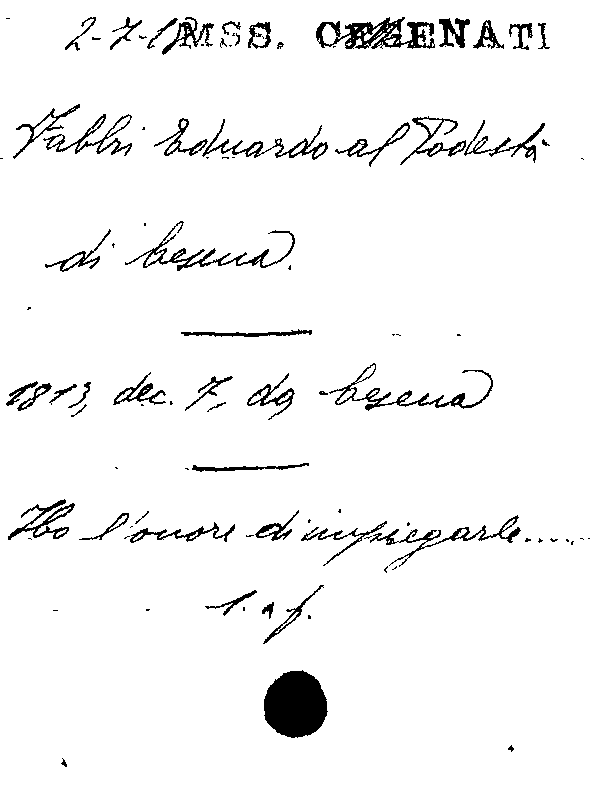 2-7- MSS. CESENATI
Fabbri Eduardo al Podestà
di Cesena.
1813, dec. 7, da Cesena
Ho l'onore di impiegarle....
1. a f.